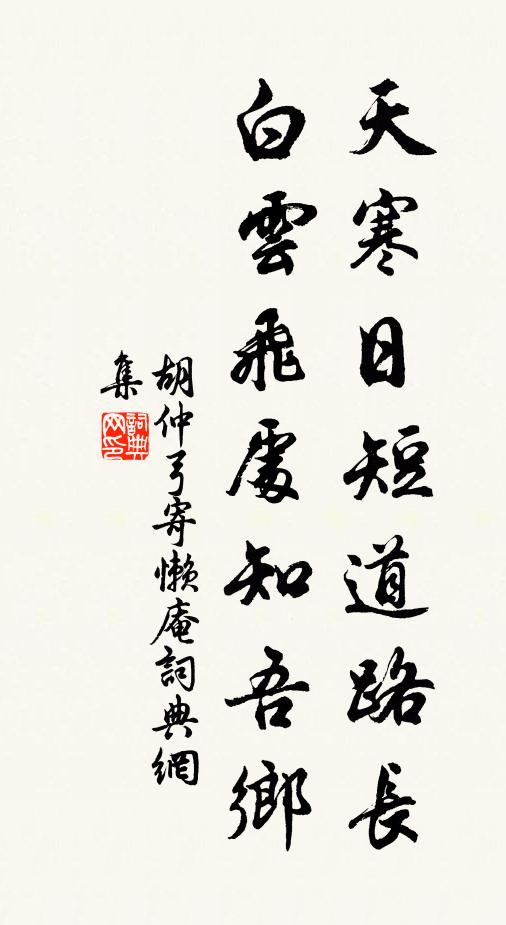 天寒日短道路長
白雲飛處知吾鄉
胡仲弓寄懶庵詞典網
集
詞典網印